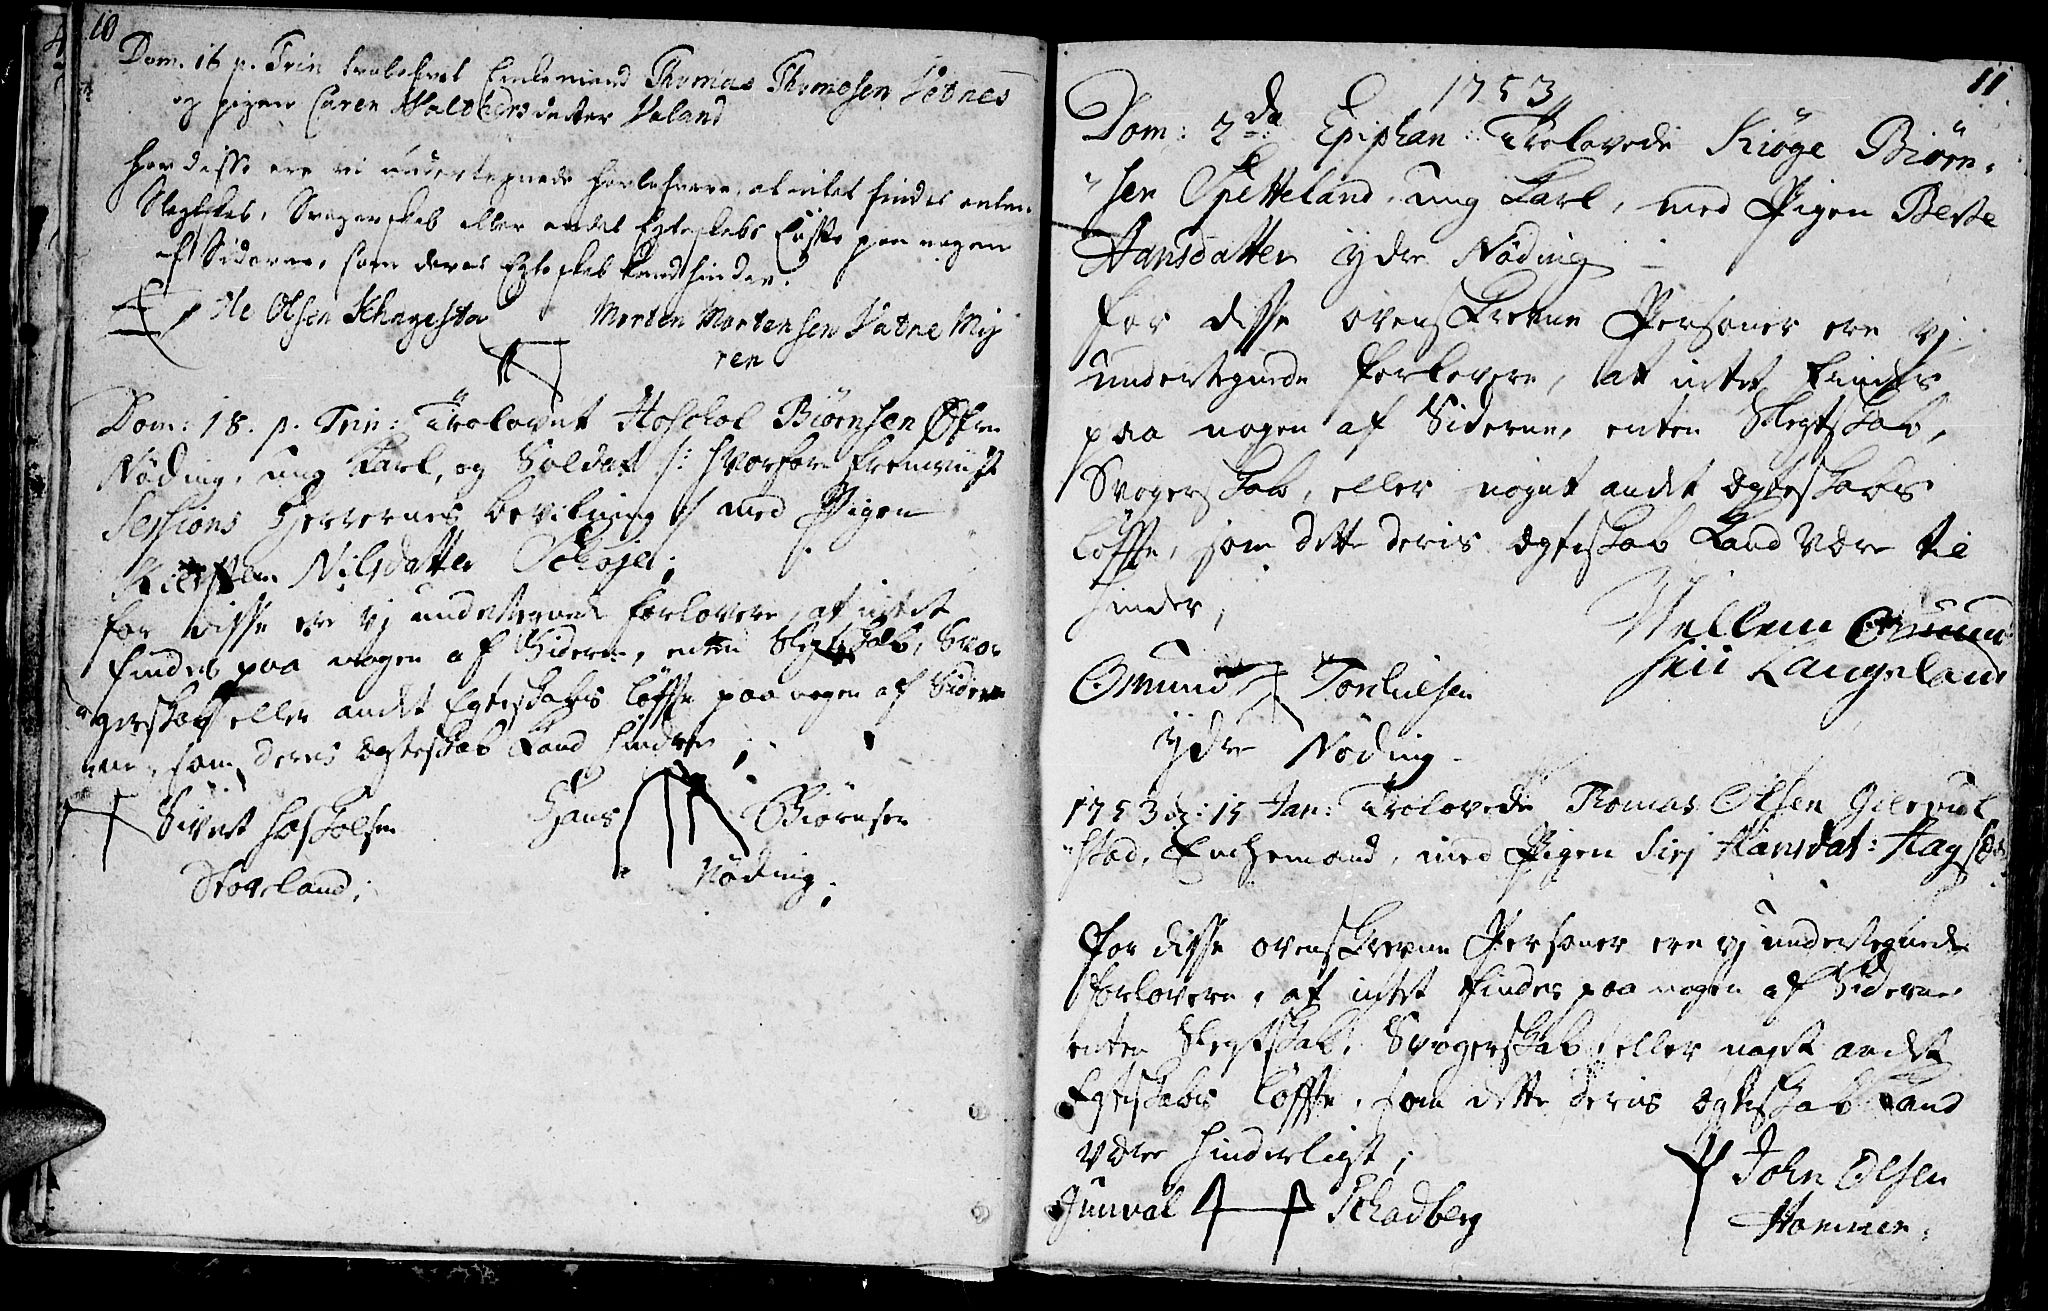 10
Dom. 16 p. Trin trolofvet Enkemand Thomas Thomesen Vetnes
og pigen Caren Maltensdatter Valand
For disse ere vi undertegnede forlofvere, at intet findes enten
Slegtskab, Svogerskab eller andet Egteskabs Løffte paa nogen
af Siderne, som deres Egteskab kand hindre.
Ole Olsen Morten Mortensen Vatne Mÿ
ren
Dom: 18. p. Trin: Trolovet Hoschol Biörnsen Øfre
Nöding, ung Karl, og Soldat /: hvorfore fremviist
Sessions Herrernes bevilning :/ med Pigen
Kiersten Nilsdatter
for disse ere vj undertegnede forlovere, at intet
findes paa nogen af Siderne, enten Slegtskab, Svo-
gerskab eller andet Egteskabs löffte paa nogen af Sider-
ne, som deres Ægteskab kand hindre;
Sivert Hoskolsen Hans Biörnsen
Stovland; Nöding;
11.
1753
Dom: 2da Epiphan: Trolovede Kiöge Biörn-
sen Spetteland, ung Karl, med Pigen Berte
Hansdatter ÿdre Nöding
for disse ovenskrevne Personer ere vj
undertegnede forlovere, at intet findes
paa nogen af Siderne, enten Slegtskab,
Svogerskab, eller noget andet Ægteskabs
löffte, som dette deris Ægteskab kand være til
hinder,
Wellem Omund
sen Langeland
Omund Torkielsen
ÿdre Nöding
1753 d: 15 Jan: Trolovede Thomas Olsen
stad, Enchemand, med Pigen Sirj Hansdat:
for disse ovenskrevne Personer ere vj undertegnede
forlovere, at intet findes paa nogen af Siderne
enten Slegtskab, Svogerskab, eller noget andet
Egteskabs löffte, som dette deris Ægteskab kand
være hinderligt;
John Olsen
Gunval Schadberg
Hommen.